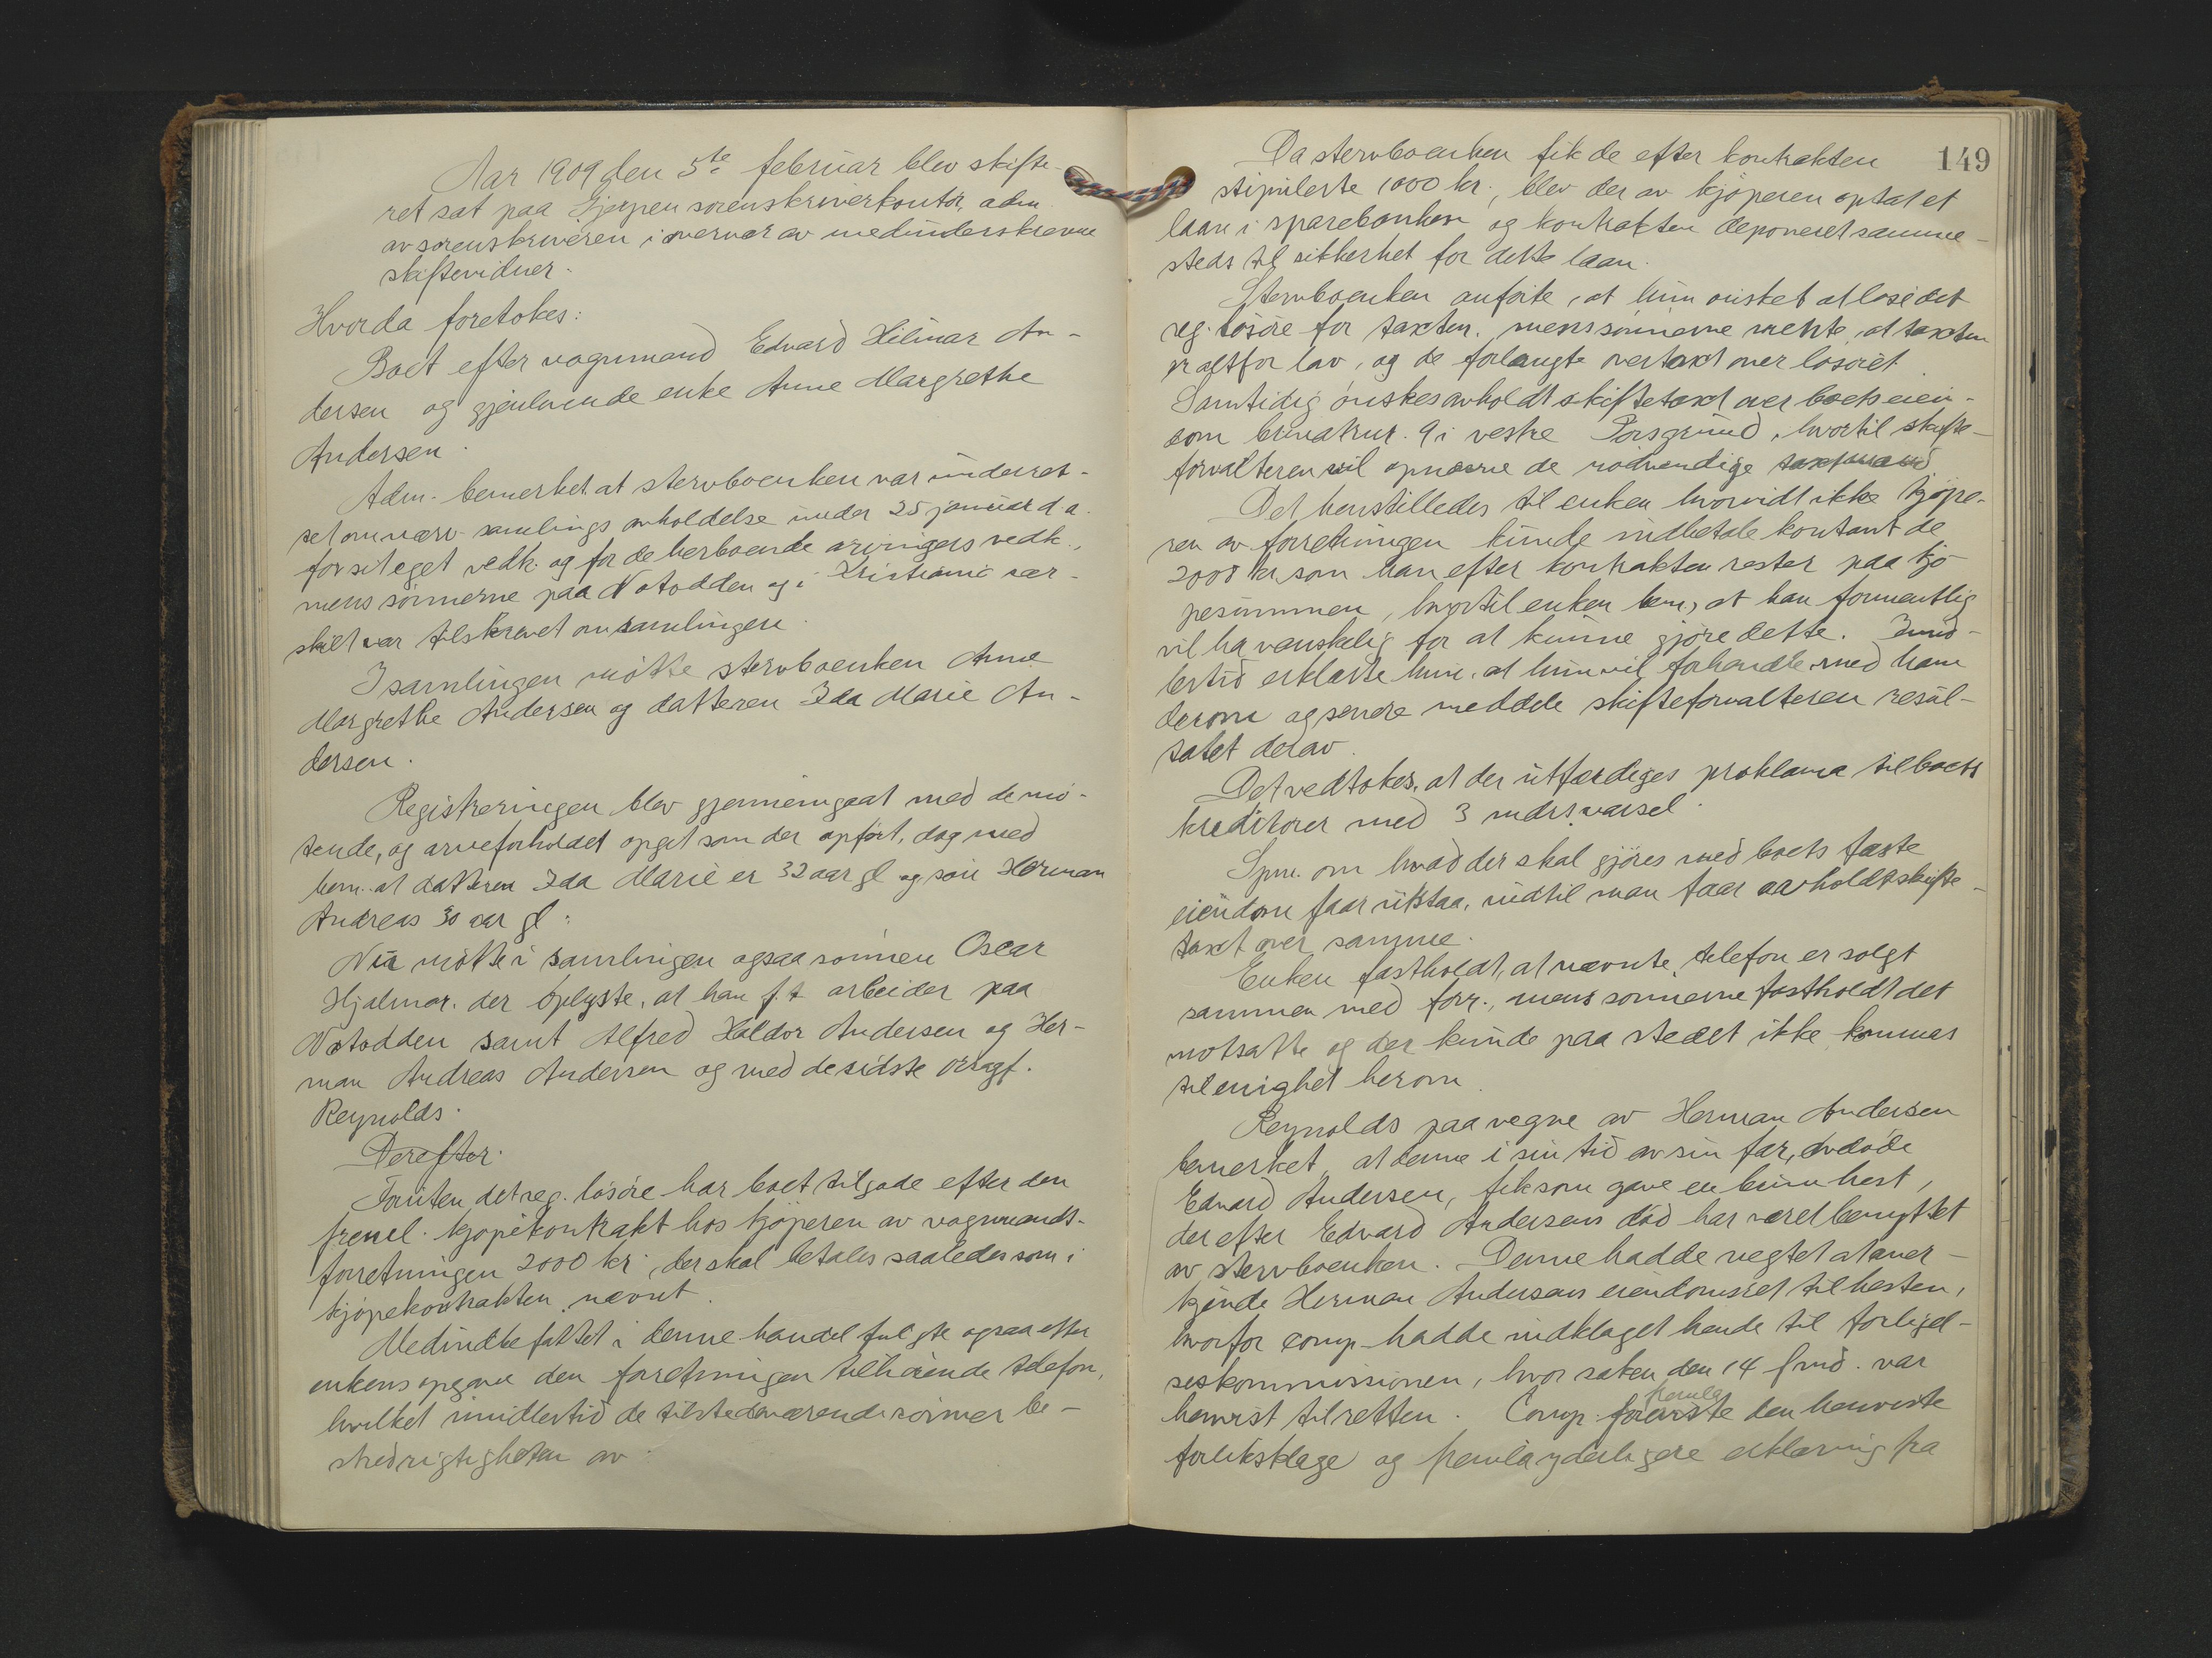 Aar 1909 den 5te februar blev skifte-
ret sat paa Gjerpen sorenskriverkontor, adm.
av sorenskriveren i overvær av medunderskrevne
skiftevidner.
Hvorda foretokes:
Boet efter vognmand Edvard Hilmar An-
dersen og gjenlevende enke Anne Margrethe
Andersen.
Adm. bemerket at stervboenken var underret-
tet om nærv. samlings avholdelse under 25 januar d.a.
for sit eget vedk. og for de herboende arvingers vedk.,
mens sønnerne paa Notodden og i Kristiania sær-
skilt var tilskrevet om samlingen.
I samlingen møtte stervboenken Anne
Margrethe Andersen og datteren Ida Marie An-
dersen.
Registreringen blev gjennemgaat med de mø-
tende, og arveforholdet opgit som der opført, dog med
bem. at datteren Ida Marie er 32 aar gl og søn Herman
Andreas 30 aar gl:
Nu møtte i samlingen ogsaa sønnen Oscar
Hjalmar. der oplyste, at han f.t. arbeider paa
Notodden samt Alfred Haldor Andersen og Her-
man Andreas Andersen og med de sidste orsagf.
Reynolds.
Derefter.
Foruten det reg. løsøre har boet tilgode efter den
freml. kjøpekontrakt hos kjøperen av vognmands-
forretningen 2000 kr, der skal betales saaledes som i
kjøpekontrakten nævnt.
Medindbefattet i denne handel fulgte ogsaa efter
enkens opgave den forretningen tilhørende telefon,
hvilket imidlertid de tilstedeværende sønner be-
stred rigtigheten av.
149
Da stervboenken fik de efter kontrakten
stipulerte 1000 kr., blev der av kjøperen optat et
laan i sparebanken og kontrakten deponeret samme-
steds til sikkerhet for dette laan.
Stervboenken anførte, at hun ønsket at løse det
reg. løsøre for taxten. mens sønnerne mente, at taxten
er altfor lav, og de forlangte overtaxt over løsøret.
Samtidig ønskes avholdt skiftetaxt over boets eien-
dom br.matr.nr. 9 i vestre Porsgrund, hvortil skifte-
forvalteren vil opnævne de nødvendige taxtmænd.
Det henstilledes til enken hvorvidt ikke kjøpe-
ren av forretningen kunde indbetale kontant de
2000 kr, som han efter kontrakten rester paa kjø-
pesummen, hvortil enken bem, at han formentlig
vil ha vanskelig for at kunne gjøre dette. Imid-
lertid erklærte hun, at hun vil forhandle med ham
derom og senere meddele skifteforvalteren resul-
tatet derav.
Det vedtokes, at der utfærdiges proklama til boets
kreditorer med 3 mdrs. varsel.
Spm. om hvad der skal gjøres med boets faste
eiendom faar utstaa, indtil man faar avholdt skifte-
taxt over samme.
Enken fastholdt, at nævnte telefon er solgt
sammen med forr., mens sønnerne fastholdt det
motsatte og der kunde paa stedet ikke kommes
til enighet herom.
Reynolds paa vegne av Herman Andersen
bemerket, at denne i sin tid av sin far, avdøde
Edvard Andersen, fik som gave en brun hest,
der efter Edvard Andersens død har været benyttet
av stervboenken. Denne hadde negtet at aner-
kjende Herman Andersens eiendomsret til hesten,
hvorfor comp. hadde indklaget hende til forligel-
seskommissionen, hvor saken den 14 f.md. var
henvist til retten. Comp. foreviste fremla den henviste
forliksklage og fremla yderligere erklæring fra